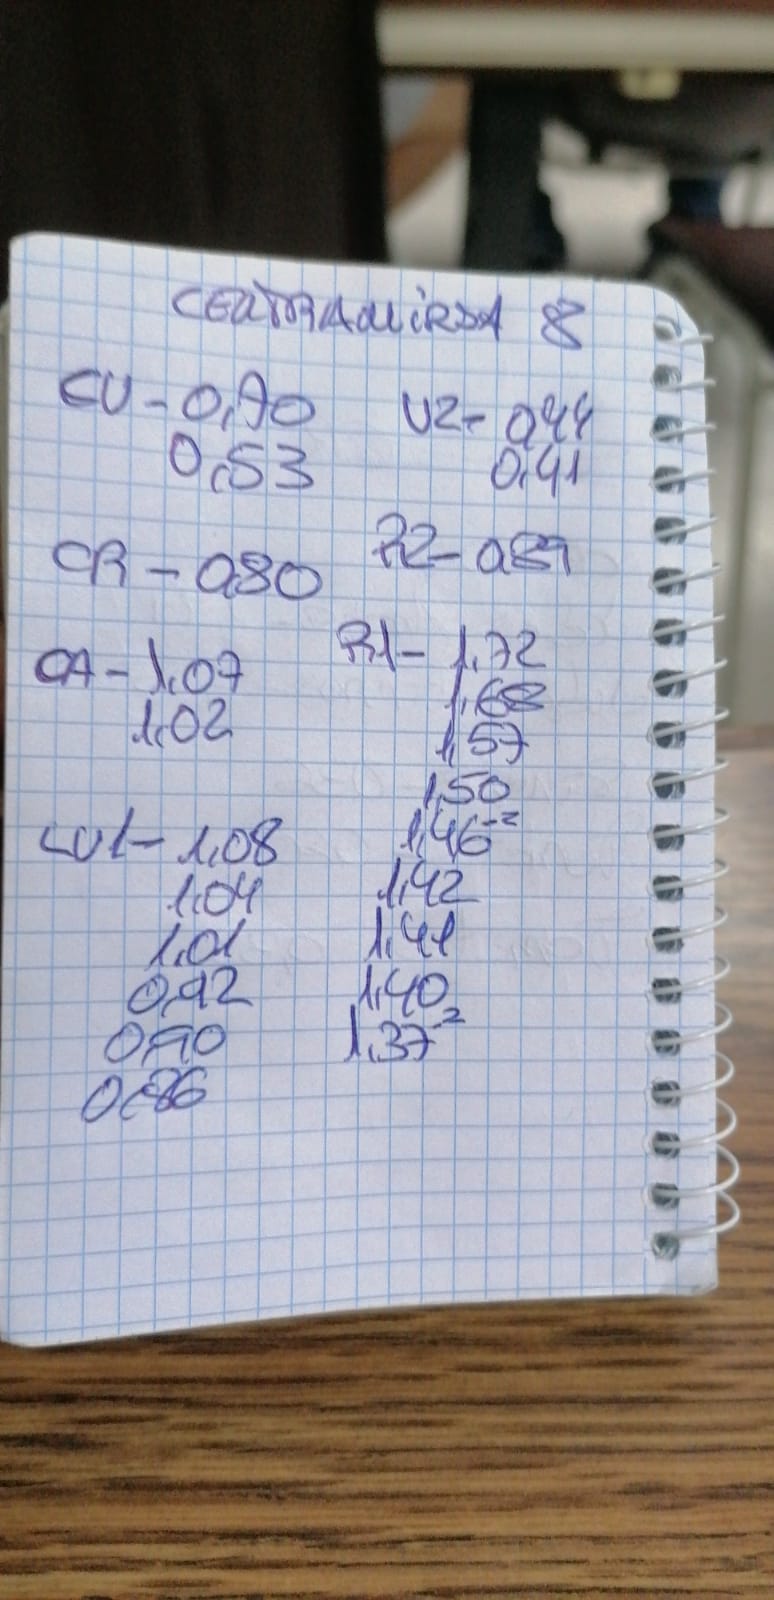 8
CU - 0,90
0,53
CR - 0,80
CA - 1,07
1,02
CU1 - 1,08
1,04
1,01
0,92
0,90
0,86
U2 - 0,44
0,41
R2 - 0,89
R1 - 1,72
1,68
1,57
1,50
1,46-2
1,42
1,41
1,40
1,37-2